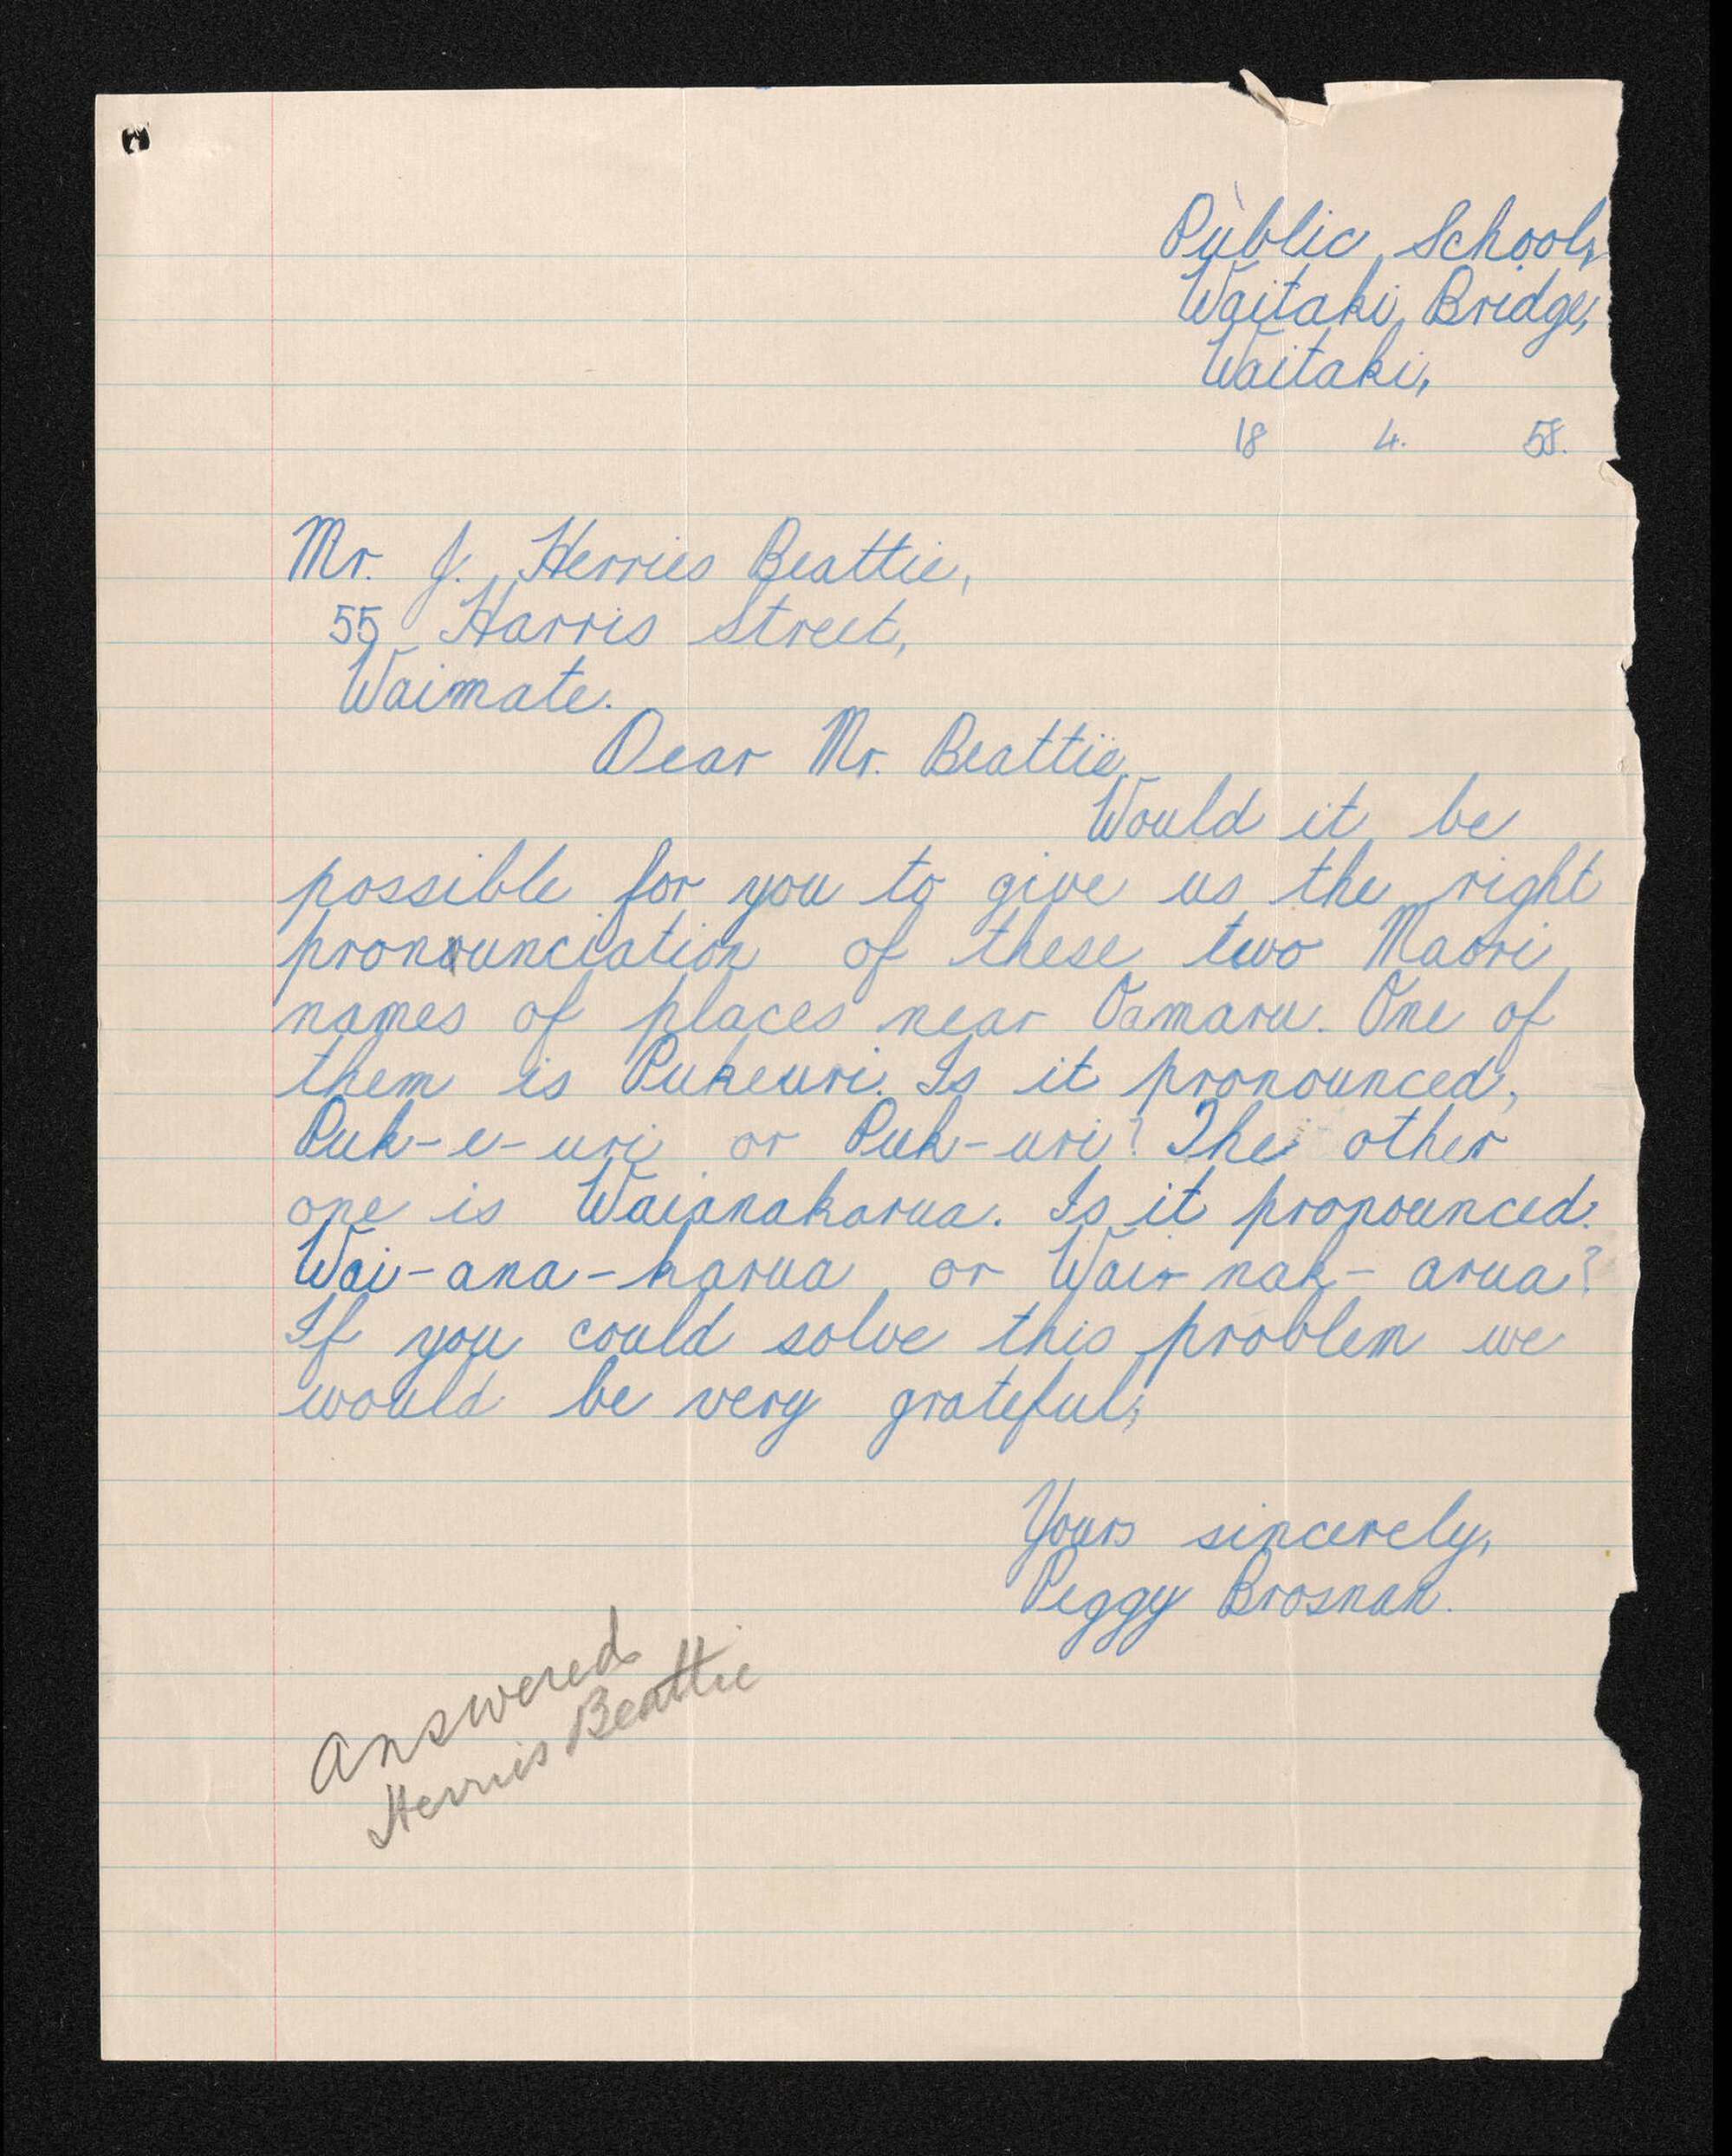 Public School,
Waitaki Bridge,
Waitaki,
18 4. 58.
Mr. J. Herries Beattie,
55 Harris Street,
Waimate.
Dear Mr. Beattie,
Would it be
possible for you to give us the right
pronounciation of these two Maori
names of places near Oamaru. One of
them is Pukeuri. Is it pronounced,
Puk-e-uri or Puk-uri? The other
one is Waianakarua. Is it pronounced.
Wai-ana-karua or Wai-nak-arua?
If you could solve this problem we
would be very grateful;
Yours sincerely,
Peggy Brosnan.
Answered
Herries Beattie